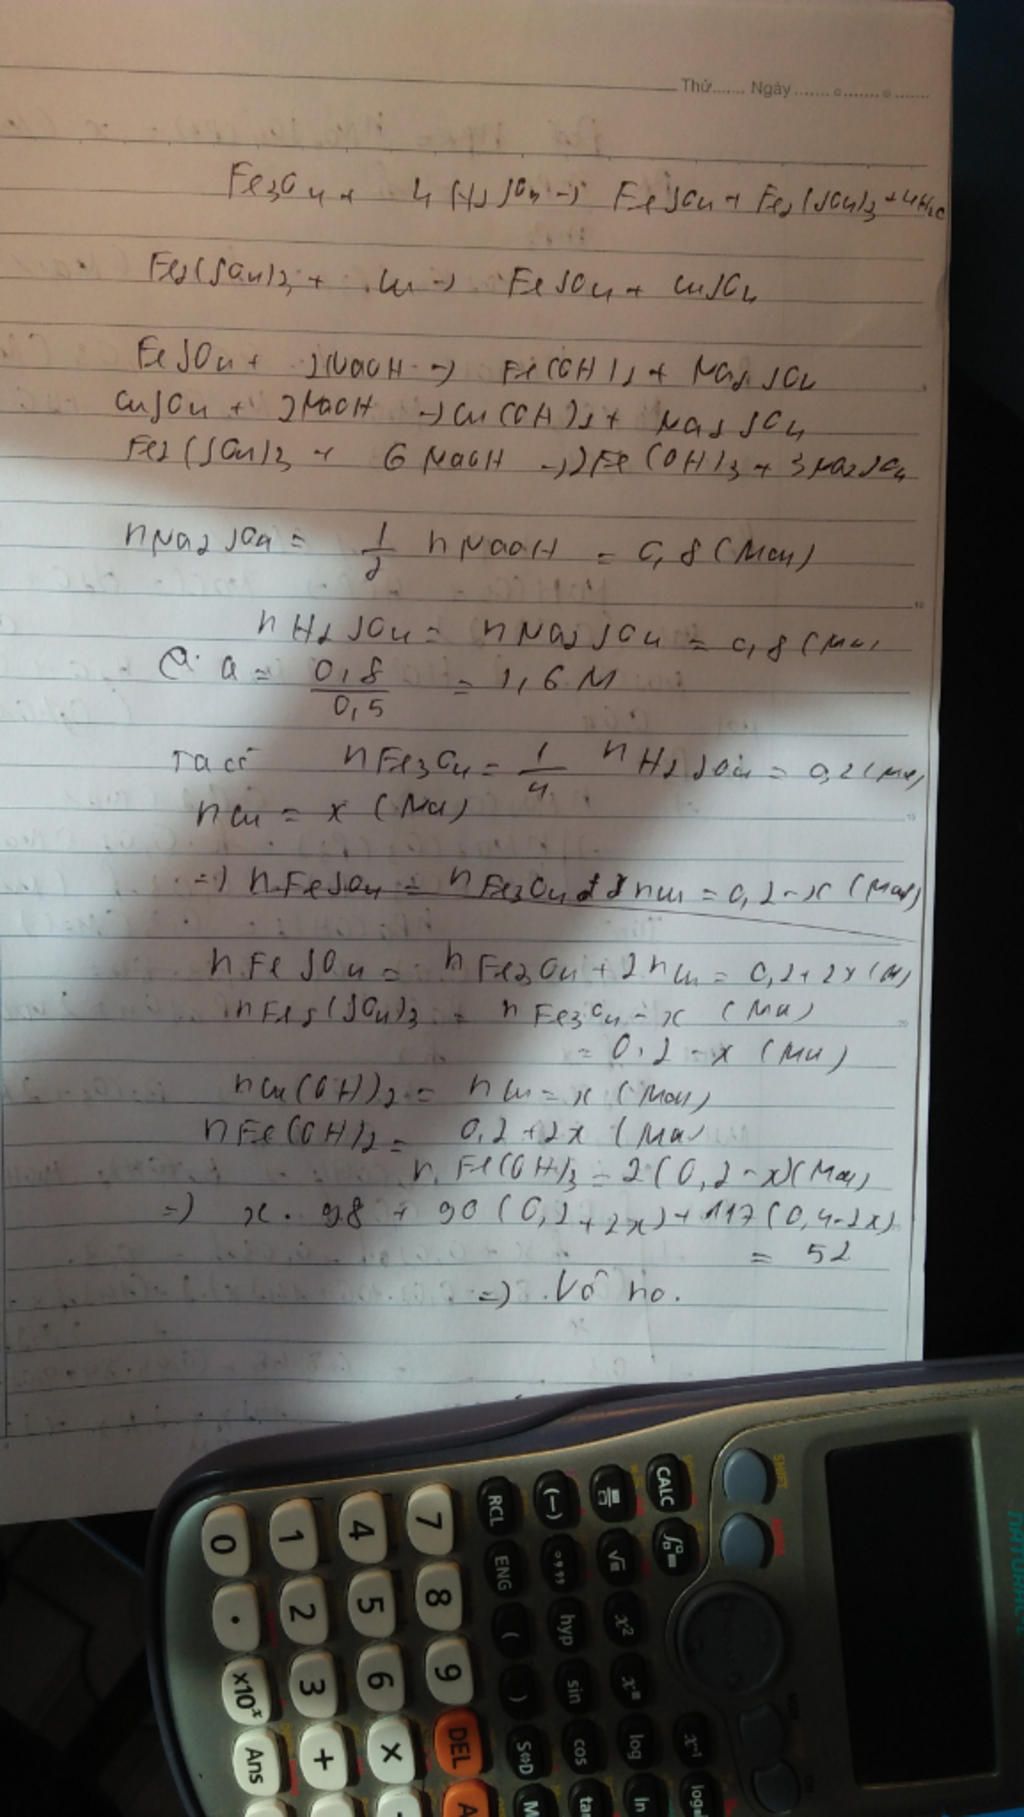 Thứ....... Ngày.......
Fe3O4 + 4H2SO4 -> FeSO4 + Fe2(SO4)3 + 4H2O
Fe2(SO4)3 + Cu -> FeSO4 + CuSO4
FeSO4 + 2NaOH -> Fe(OH)2 + Na2SO4
CuSO4 + 2NaOH -> Cu(OH)2 + Na2SO4
Fe2(SO4)3 + 6NaOH -> 2Fe(OH)3 + 3Na2SO4
nNa2SO4 = 1/2 nNaOH = 0,8 (Mol)
nH2SO4 = nNa2SO4 = 0,8 (Mol)
a = 0,8/0,5 = 1,6 M
Ta có nFe3O4 = 1/4 nH2SO4 = 0,2 (Mol)
nCu = x (Mol)
=) nFeSO4 = nFe3O4 nCu = 0,2 - x (Mol)
nFeSO4 = nFe3O4 + 2nCu = 0,2 + 2x (M)
nFe2(SO4)3 = nFe3O4 - x (Mol)
= 0,2 - x (Mol)
nCu(OH)2 = nCu = x (Mol)
nFe(OH)2 = 0,2 + 2x (Mol)
nFe(OH)3 = 2(0,2 - x) (Mol)
=) x. 98 + 90(0,2 + 2x) + 117(0,4 - 2x)
= 52
=) Vô no.
SHIFT
CALC
RCL (-)
0 1 4 7 ENG
. 2 5 8 ( hyp x²
×10ˣ 3 6 9 ) sin
Ans + × DEL S⇔D cos log x⁻¹
ln